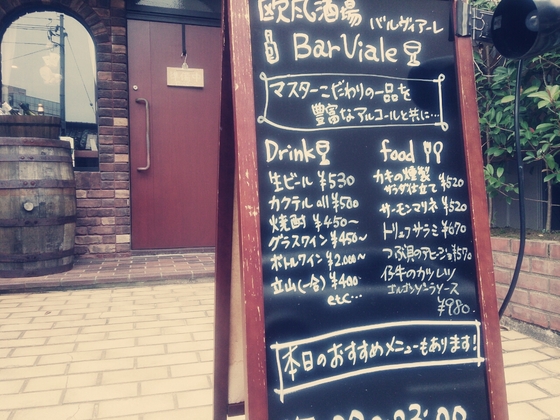 欧風酒場 バルヴィアーレ
Bar Viale
マスターこだわりの一品を
豊富なアルコールと共に…
Drink
生ビール ¥530
カクテル all ¥500
焼酎 ¥450~
グラスワイン ¥450~
ボトルワイン ¥2.000~
立山(一合) ¥400
etc…
food
カキの燻製
サラダ仕立て ¥520
サーモンマリネ ¥520
トリュフサラミ ¥670
つぶ貝のアヒージョ ¥570
仔牛のカツレツ
ゴルゴンゾーラソース
¥980.
本日のおすすめメニューもあります!